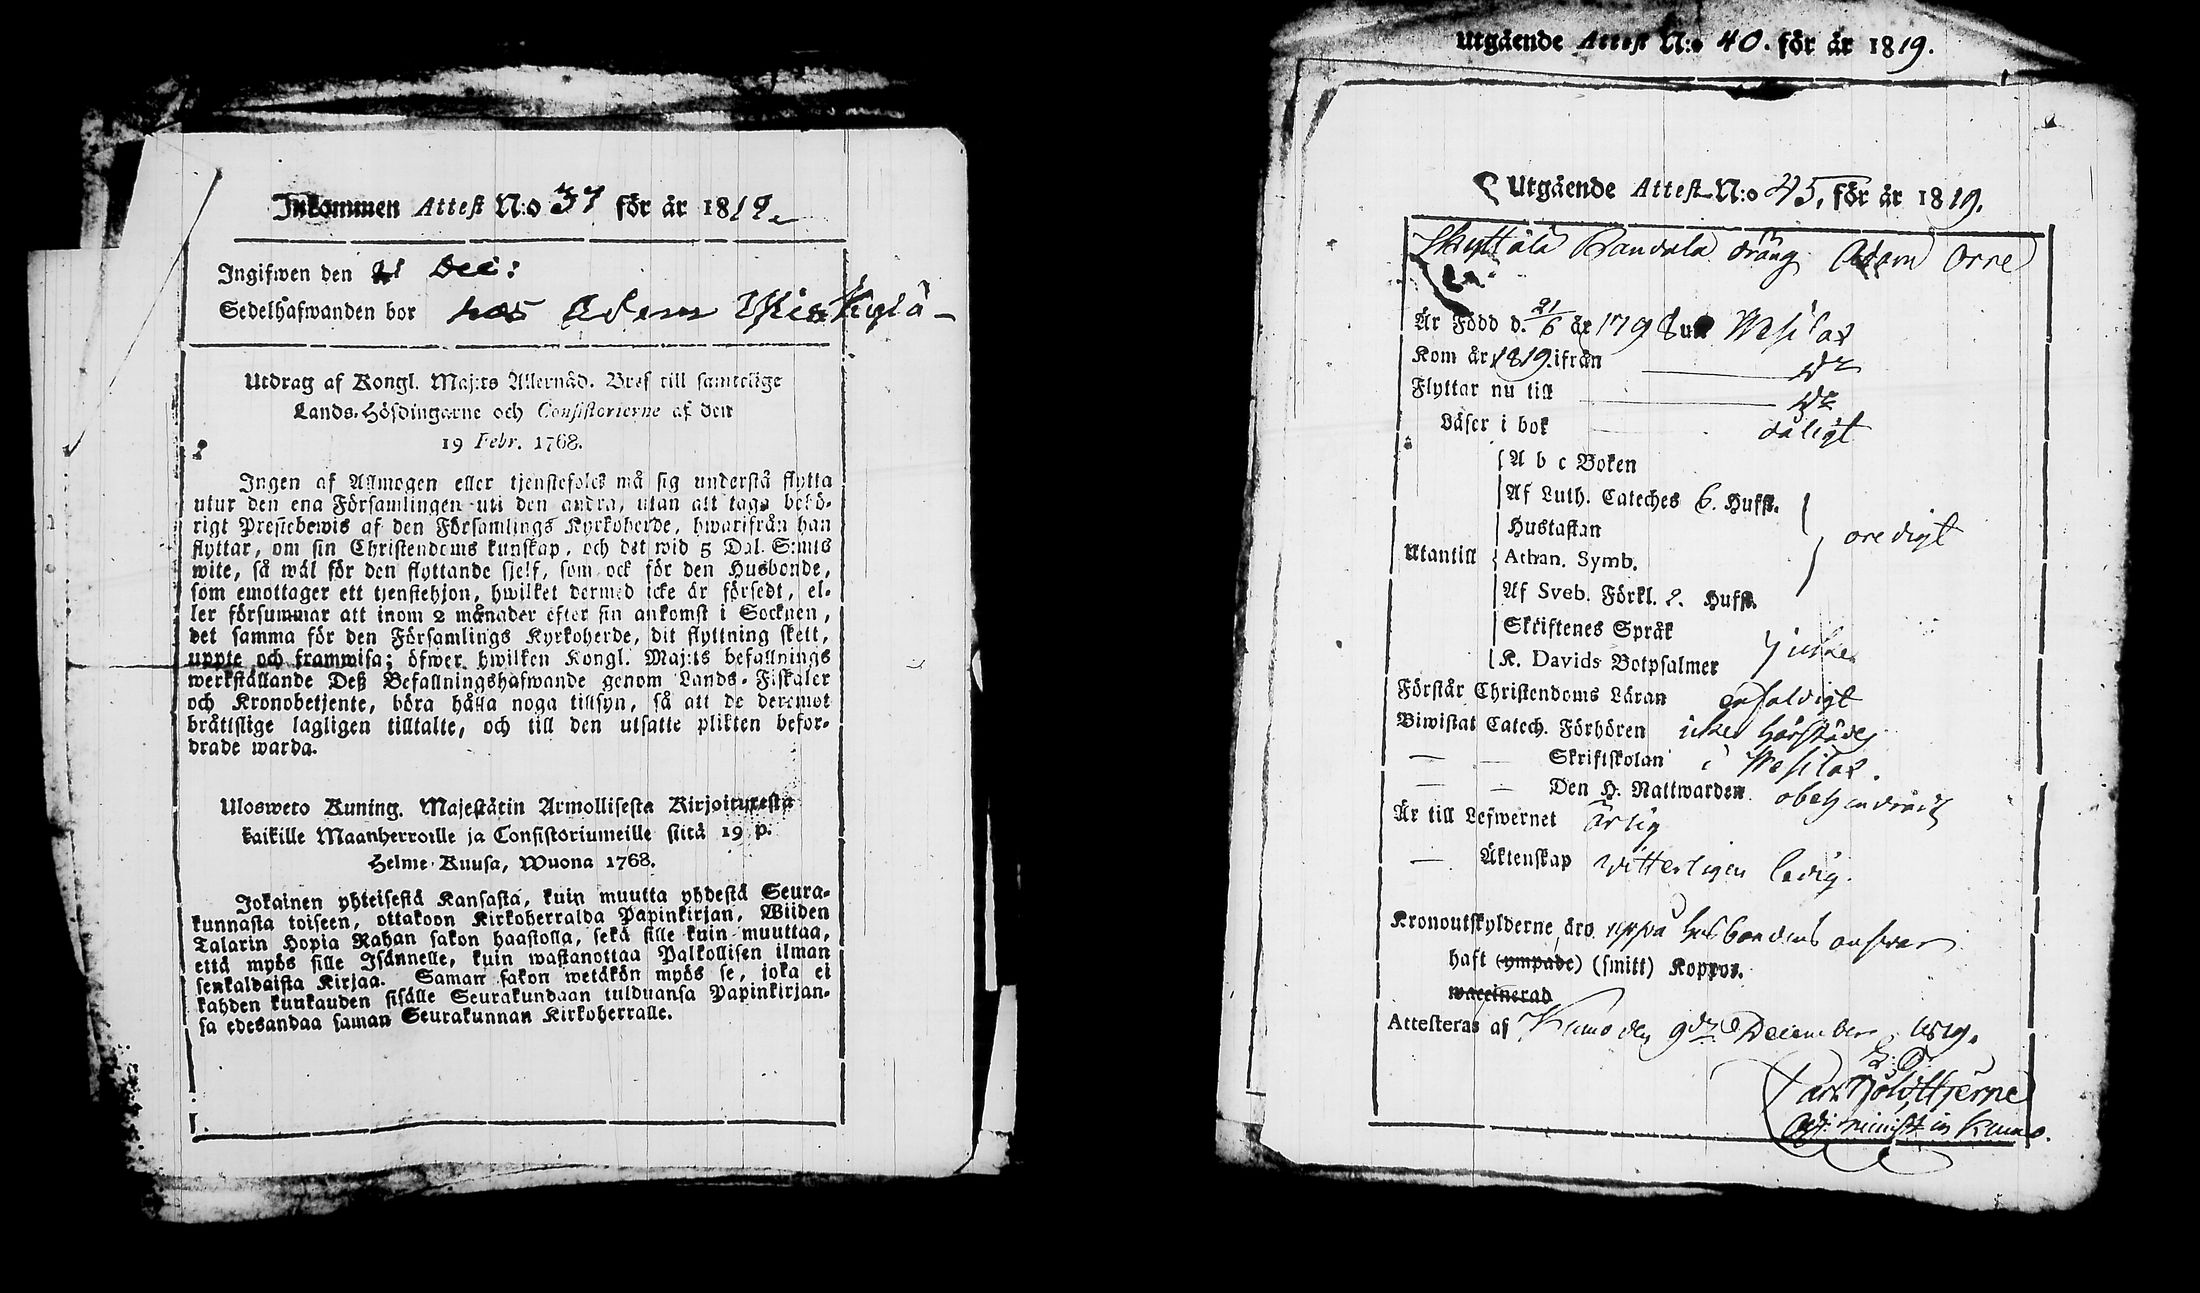 Inkommen Attest N:o 37 för år 1819.
Ingifwen den 21 Dec:
Sedelhafwanden bor hos Adam
Utdrag af Kongl. Maj:ts Allernåd. Bref till samtelige
Lands-Höfdingarne och Consistorierne af den
19 Febr. 1768.
Ingen af Allmogen eller tjenstefolcs må sig understå flytta
utur den ena Församlingen uti den andra, utan att taga behö-
rigt Prestebewis af den Församlings Kyrkoherde, hwarifrån han
flyttar, om sin Christendoms kunskap, och det wid 5 Dal. S:mts
wite, så wäl för den flyttande sjelf, som ock för den Husbonde,
som emottager ett tjenstehjon, hwilket dermed icke är försedt, el-
ler försummar att inom 2 månader efter sin ankomst i Socknen,
det samma för den Församlings Kyrkoherde, dit flyttning skett,
uppte och framwisa; öfwer hwilken Kongl. Maj:ts befallnings
werkställande Deß Befallningshafwande genom Lands-Fiskaler
och Kronobetjente, böra hålla noga tillsyn, så att de deremot
bråtislige lagligen tilltalte, och till den utsatte plikten befor-
drade warda.
Ulosweto Kuning. Majestätin Armollisesta Kirjoituxesta
kaikille Maanherroille ja Consistoriumeille siitä 19 p.
Helme-Kuusa, Wuona 1768.
Jokainen yhteisestä Kansasta, kuin muutta yhdestä Seura-
kunnasta toiseen, ottakoon Kirkoherralda Papinkirjan, Wiiden
Talarin Hopia Rahan sakon haastolla, sekä sille kuin muuttaa,
että myös sille Isännelle, kuin wastanottaa Palkollisen ilman
senkaldaista Kirjaa. Saman sakon wetäkön myös se, joka ei
kahden kuukauden sisälle Seurakundaan tulduansa Papinkirjan-
sa edesandaa saman Seurakunnan Kirkoherralle.
Utgående Attest N:o 40. för år 1819.
Utgående Attest N:o 45, för år 1819.
Skyttälä Randala dräng Adam Orre
Är Född d. 21/6 år 1798 uti Wesilax
Kom år 1819. ifrån do
Flyttar nu till do
Läser i bok dåligt
A b c Boken
Af Luth. Cateches 6. Hufst.
Hustaflan
Utantill Athan. Symb. oredigt
Af Sveb. Förkl. 2. Hufst.
Skriftenes Språk
K. Davids Botpsalmer icke
Förstår Christendoms Läran enfaldigt
Biwistat Catech. Förhören icke härstädes
— — Skriftskolan i Wesilax.
— — Den H. Nattwarden obehindradt
Är till Lefwernet ärlig
— Äktenskap witterligen ledig.
Kronoutskylderne äro uppå husbondens answar
haft (ympade) (smitt) Koppor.
waccinerad
Attesteras af Kumo den 9de December 1819.
Carl
Adj. minist. in Kumo.